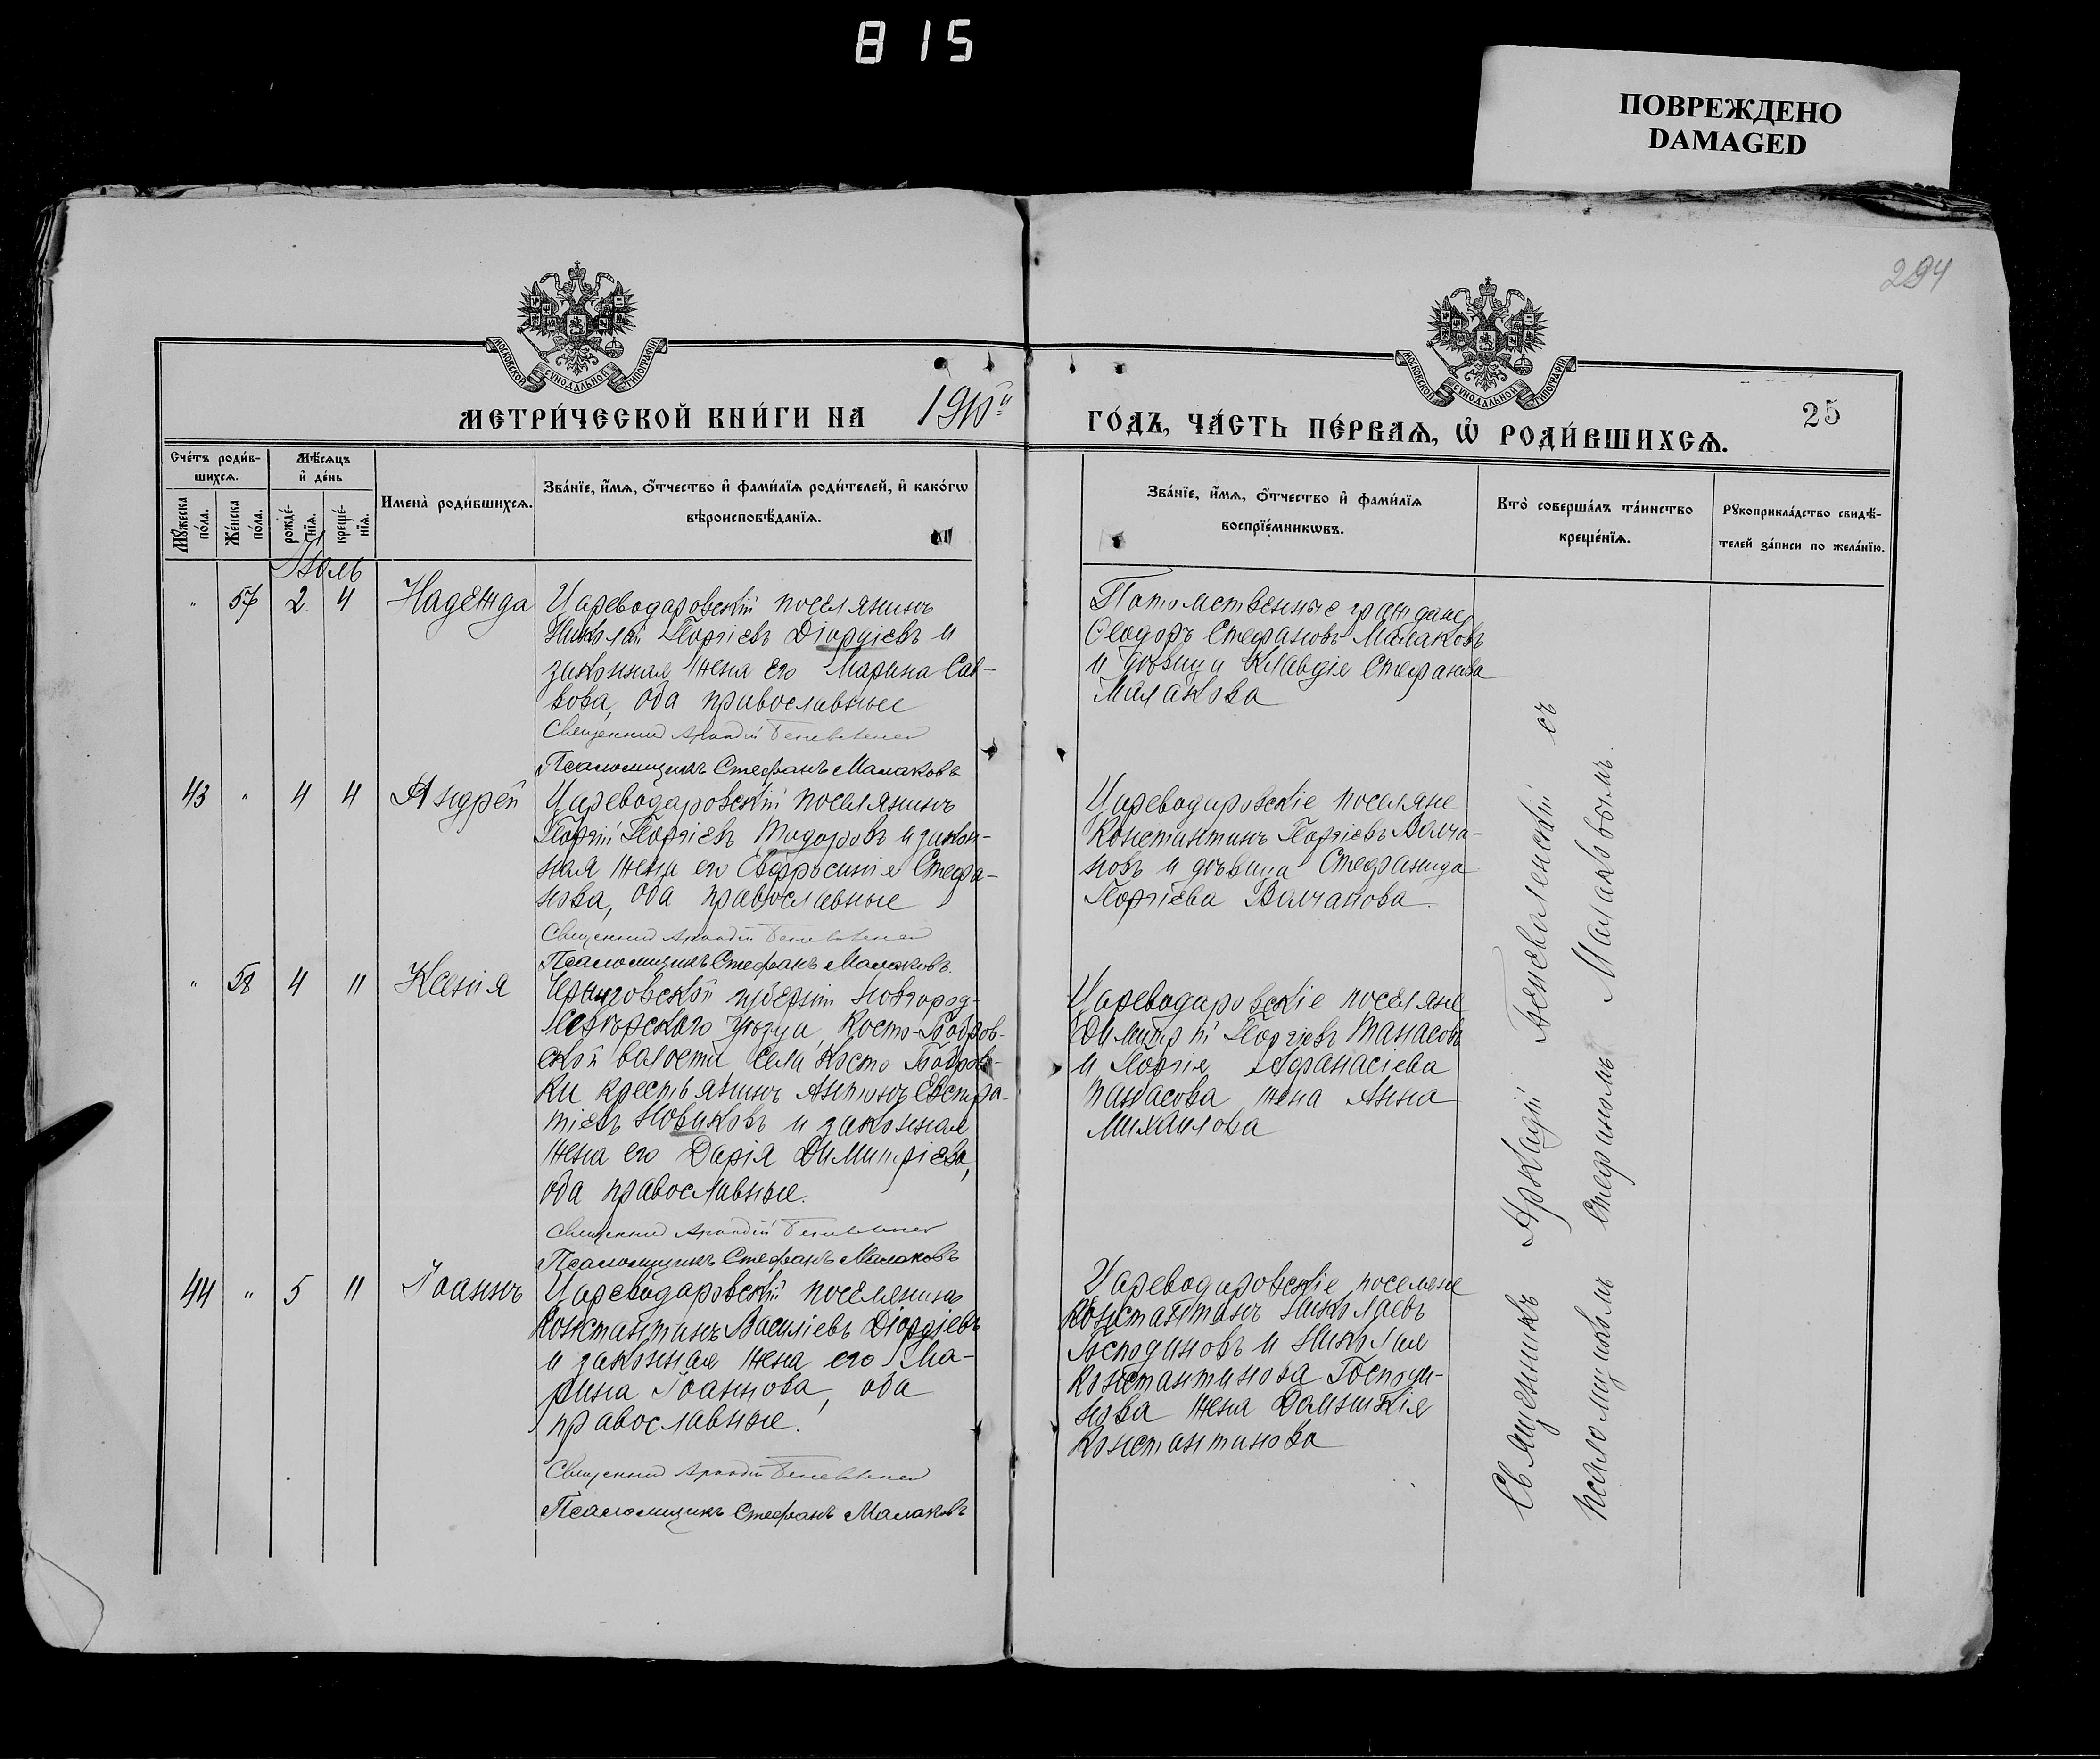 815
ПОВРЕЖДЕНО
DAMAGED
294
МОСКОВСКОЙ СУНОДАЛЬНОЙ ТИПОГРАФІИ
МОСКОВСКОЙ СУНОДАЛЬНОЙ ТИПОГРАФІИ
МЕТРИ́ЧЕСКОЙ КНИ́ГИ НА 1910
ГО́ДЪ, ЧА́СТЬ ПЕ́РВАѦ, Ѡ҆ РОДИ́ВШИХСѦ.
25
Сче́тъ роди́в-
шихсѧ.
Мꙋ́жеска по́ла.
Же́нска по́ла.
Мѣ́сѧцъ
и҆ де́нь
рожде́-
нїѧ.
креще́-
нїѧ.
Имена̀ роди́вшихсѧ.
Зва́нїе, и҆́мѧ, ѻ҆́тчество и҆ фами́лїѧ роди́телей, и҆ како́гѡ
вѣроисповѣ́данїѧ.
Зва́нїе, и҆́мѧ, ѻ҆́тчество и҆ фами́лїѧ
воспрїе́мникѡвъ.
Кто̀ соверша́лъ та́инство
креще́нїѧ.
Рꙋкоприкла́дство свидѣ́-
телей за́писи по жела́нїю.
Іюль
" 57 2 4 Надежда
Цареводаровскій поселянинъ
Николай Георгіевъ Діордіевъ и
законная жена его Марина Сав-
вова, оба православные
Священникъ Аркадій Беневоленскій
Псаломщикъ Стефанъ Малаковъ
Потомственные граждане
Ѳеодоръ Стефановъ Малаковъ
и дѣвица Клавдія Стефанова
Малакова
43 " 4 4 Андрей
Цареводаровскій поселянинъ
Георгій Георгіевъ Тодоровъ и закон-
ная жена его Евфросинія Стефа-
нова, оба православные
Священникъ Аркадій Беневоленскій
Псаломщикъ Стефанъ Малаковъ.
Цареводаровскіе поселяне
Константинъ Георгіевъ Волча-
новъ и дѣвица Стефанида
Георгіева Волчанова.
" 58 4 11 Ксенія
Черниговской губерніи Новгород-
Сѣверскаго уѣзда, Косто-Бобров-
ской волости, села Косто Бобров-
ки крестьянинъ Антонъ Евстра-
тіевъ Новиковъ и законная
жена его Дарія Димитріева,
оба православные.
Священникъ Аркадій Беневоленскій
Псаломщикъ Стефанъ Малаковъ
Цареводаровскіе поселяне
Димитрій Георгіевъ Танасовъ
и Георгія Афанасіева
Танасова жена Анна
Михаилова
44 " 5 11 Іоаннъ
Цареводаровскій поселянинъ
Константинъ Василіевъ Діордіевъ
и законная жена его Ма-
рина Іоаннова, оба
православные.
Священникъ Аркадій Беневоленскій
Псаломщикъ Стефанъ Малаковъ
Цареводаровскіе поселяне
Константинъ Николаевъ
Господиновъ и Николая
Константинова Господи-
нова жена Домникія
Константинова
Священникъ Аркадій Беневоленскій съ
псаломщикомъ Стефаномъ Малаковымъ.